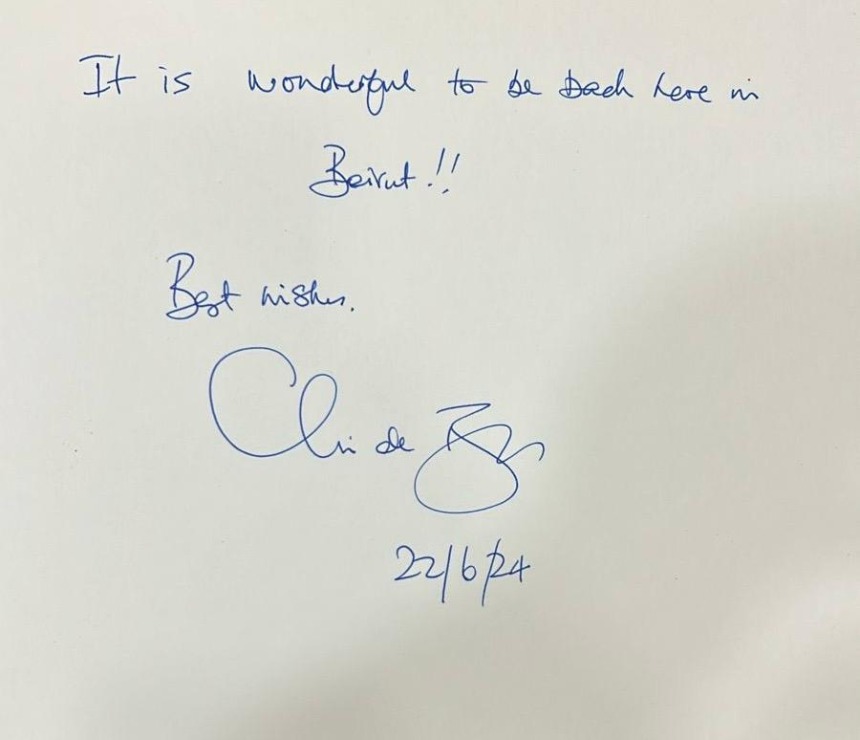 It is wonderful to be back here in
Beirut!!
Best wishes.
Chris de
22/6/24